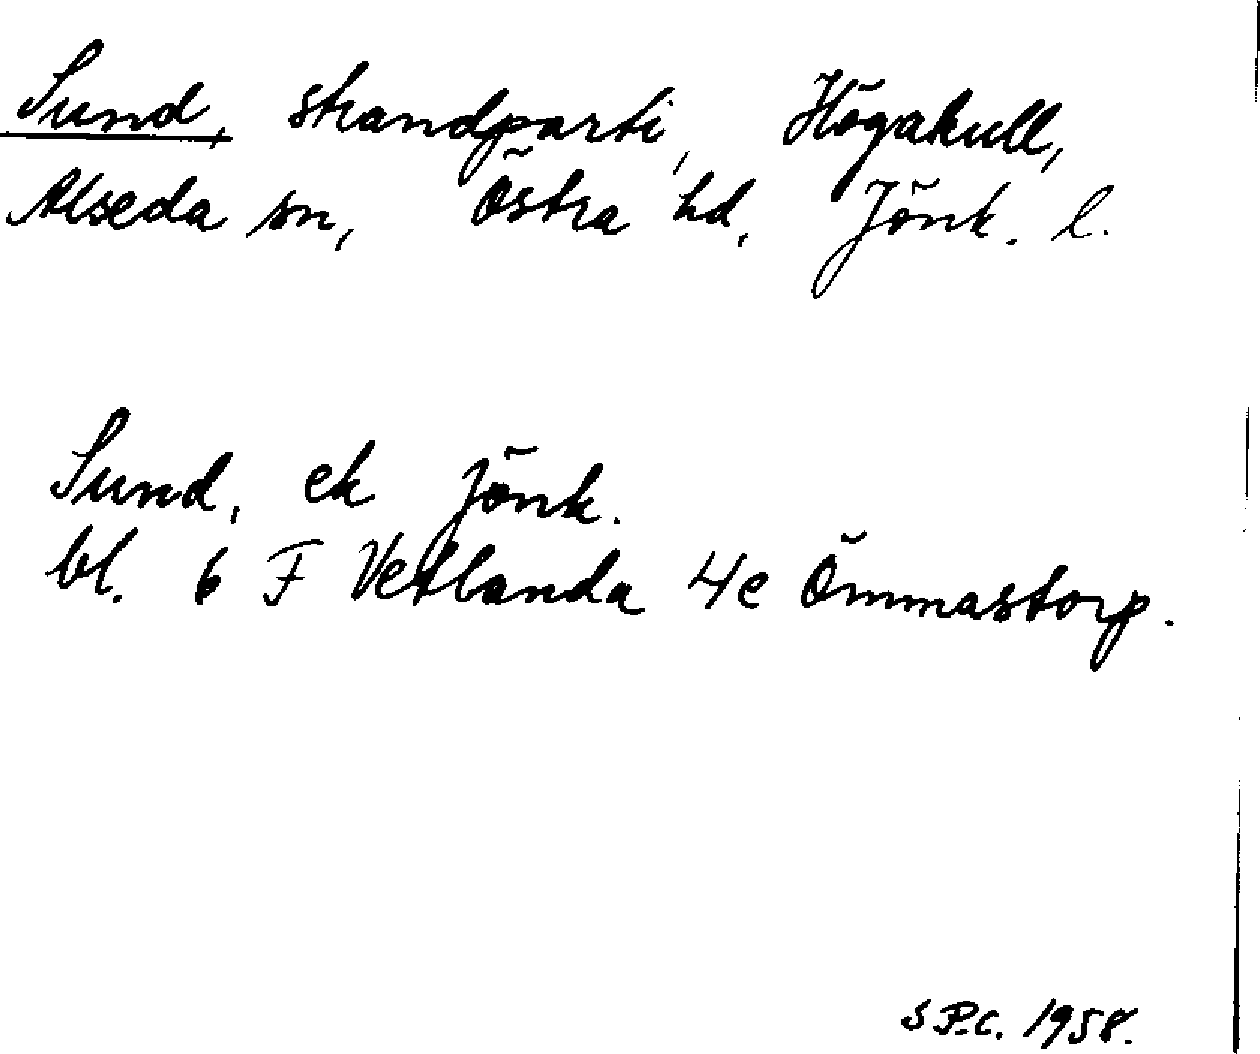 Sund, strandparti, Högakull,
Alseda sn, Östra hd, Jönk. l.
Sund, ek Jönk.
bl. 6 F Vetlanda 4e Ömmastorp.
S P.C. 1958.